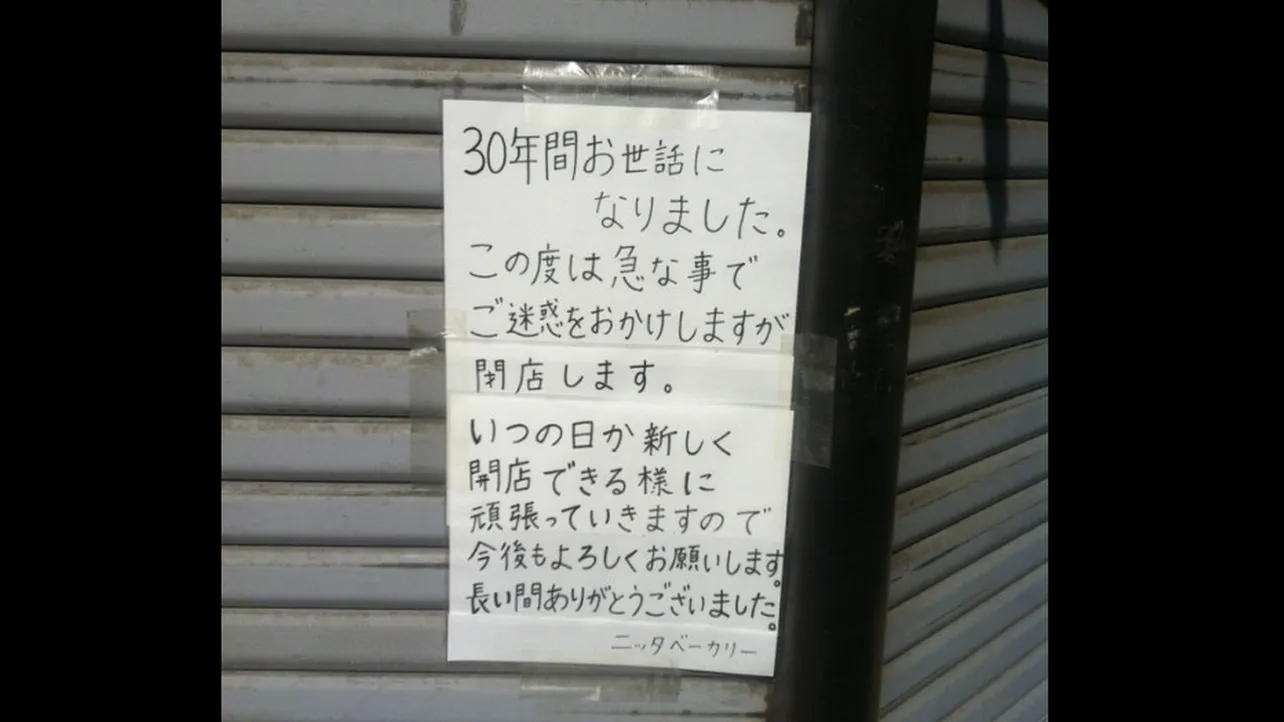 30年間お世話に
なりました。
この度は急な事で
ご迷惑をおかけしますが
閉店します。
いつの日か新しく
開店できる様に
頑張っていきますので
今後もよろしくお願いします。
長い間ありがとうございました。
ニッタベーカリー